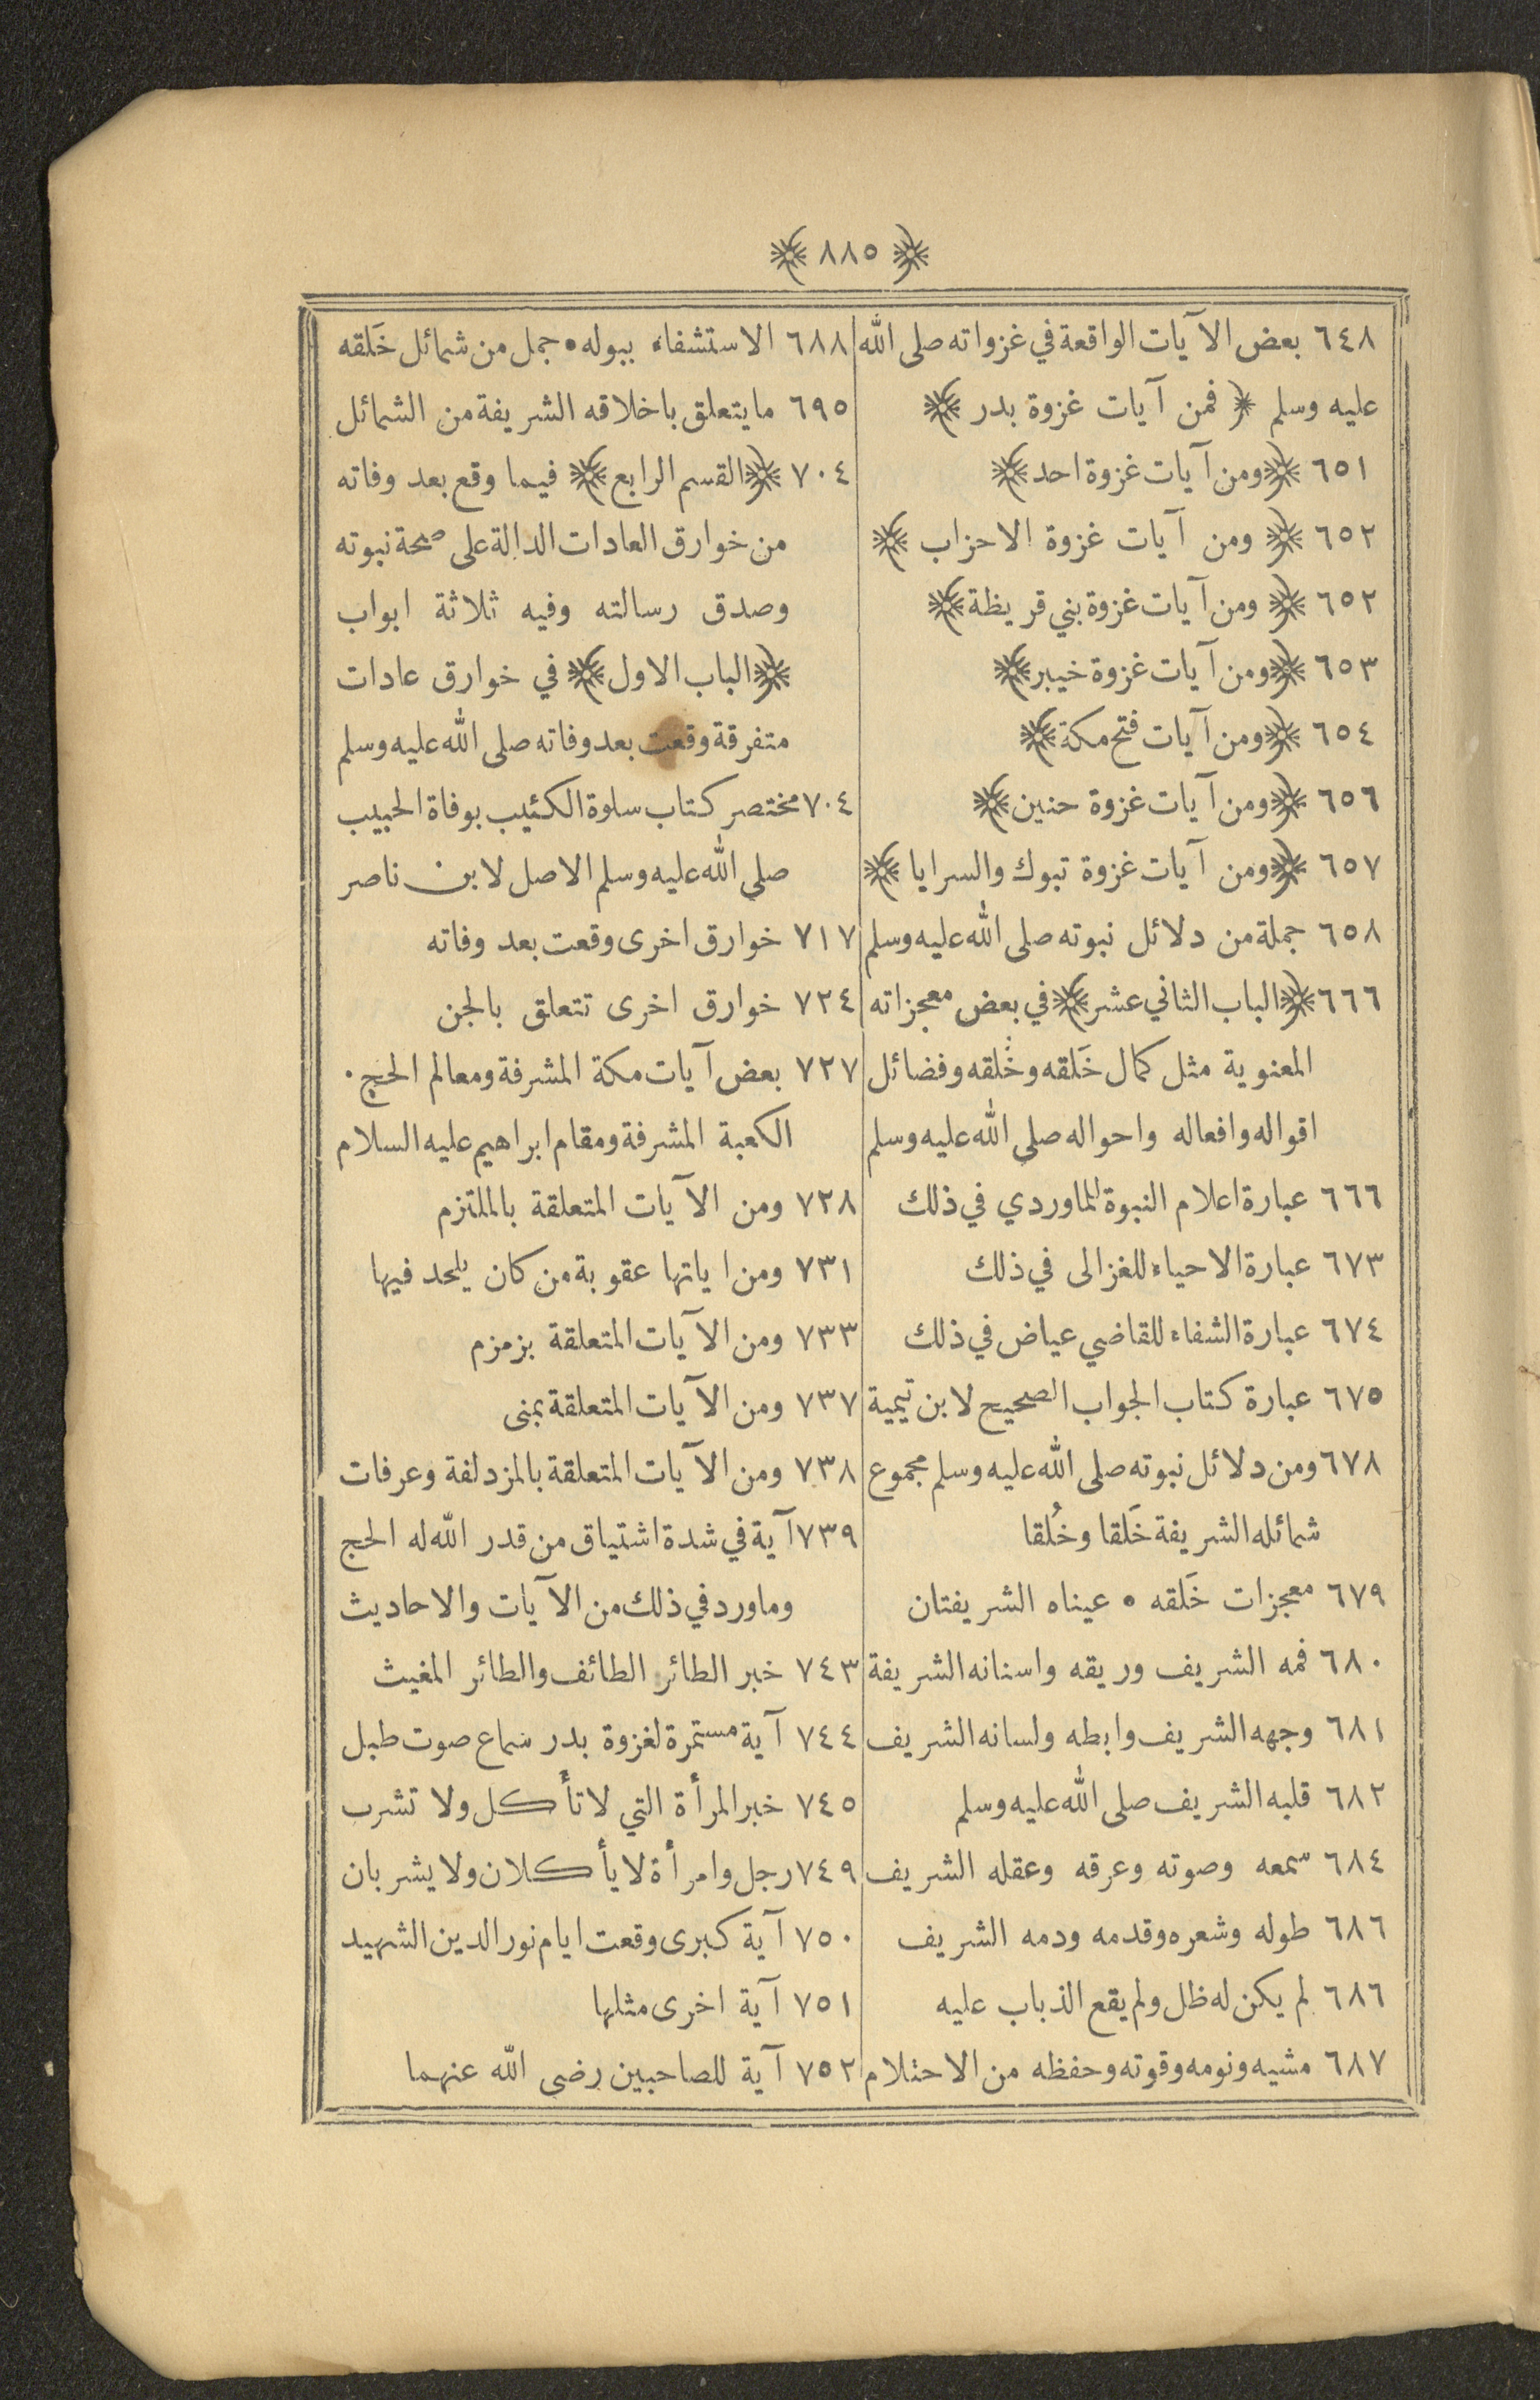 ﴿ ٨٨٥ ﴾
٦٤٨ بعض الآيات الواقعة في غزواته صلى الله
عليه وسلم ﴿ فمن آيات غزوة بدر ﴾
٦٥١ ﴿ومن آيات غزوة احد﴾
٦٥٢ ﴿ ومن آيات غزوة الاحزاب ﴾
٦٥٢ ﴿ ومن آيات غزوة بني قريظة﴾
٦٥٣ ﴿ومن آيات غزوة خيبر﴾
٦٥٤ ﴿ومن آيات فتح مكة﴾
٦٥٦ ﴿ومن آيات غزوة حنين﴾
٦٥٧ ﴿ومن آيات غزوة تبوك والسرايا ﴾
٦٥٨ جملة من دلائل نبوته صلى الله عليه وسلم
٦٦٦ ﴿الباب الثاني عشر﴾ في بعض معجزاته
المعنوية مثل كمال خَلقه وخُلقه وفضائل
اقواله وافعاله واحواله صلى الله عليه وسلم
٦٦٦ عبارة اعلام النبوة للماوردي في ذلك
٦٧٣ عبارة الاحياء للغزالى في ذلك
٦٧٤ عبارة الشفاء للقاضي عياض في ذلك
٦٧٥ عبارة كتاب الجواب الصحيح لابن تيمية
٦٧٨ ومن دلائل نبوته صلى الله عليه وسلم مجموع
شمائله الشريفة خَلقا وخُلقا
٦٧٩ معجزات خَلقه • عيناه الشريفتان
٦٨٠ فمه الشريف وريقه واسنانه الشريفة
٦٨١ وجهه الشريف وابطه ولسانه الشريف
٦٨٢ قلبه الشريف صلى الله عليه وسلم
٦٨٤ سمعه وصوته وعرقه وعقله الشريف
٦٨٦ طوله وشعره وقدمه ودمه الشريف
٦٨٦ لم يكن له ظل ولم يقع الذباب عليه
٦٨٧ مشيه ونومه وقوته وحفظه من الاحتلام
٦٨٨ الاستشفاء ببوله • جمل من شمائل خَلقه
٦٩٥ ما يتعلق باخلاقه الشريفة من الشمائل
٧٠٤ ﴿القسم الرابع﴾ فيما وقع بعد وفاته
من خوارق العادات الدالة على صحة نبوته
وصدق رسالته وفيه ثلاثة ابواب
﴿الباب الاول﴾ في خوارق عادات
متفرقة وقعت بعد وفاته صلى الله عليه وسلم
٧٠٤ مختصر كتاب سلوة الكئيب بوفاة الحبيب
صلى الله عليه وسلم الاصل لابن ناصر
٧١٧ خوارق اخرى وقعت بعد وفاته
٧٢٤ خوارق اخرى تتعلق بالجن
٧٢٧ بعض آيات مكة المشرفة ومعالم الحج •
الكعبة المشرفة ومقام ابراهيم عليه السلام
٧٢٨ ومن الآيات المتعلقة بالملتزم
٧٣١ ومن اياتها عقوبة من كان يلحد فيها
٧٣٣ ومن الآيات المتعلقة بزمزم
٧٣٧ ومن الآيات المتعلقة بمنى
٧٣٨ ومن الآيات المتعلقة بالمزدلفة وعرفات
٧٣٩ آية في شدة اشتياق من قدر الله له الحج
وما ورد في ذلك من الآيات والاحاديث
٧٤٣ خبر الطائر الطائف والطائر المغيث
٧٤٤ آية مستمرة لغزوة بدر سماع صوت طبل
٧٤٥ خبر المرأة التي لا تأكل ولا تشرب
٧٤٩ رجل وامرأة لا يأكلان ولا يشربان
٧٥٠ آية كبرى وقعت ايام نور الدين الشهيد
٧٥١ آية اخرى مثلها
٧٥٢ آية للصاحبين رضي الله عنهما